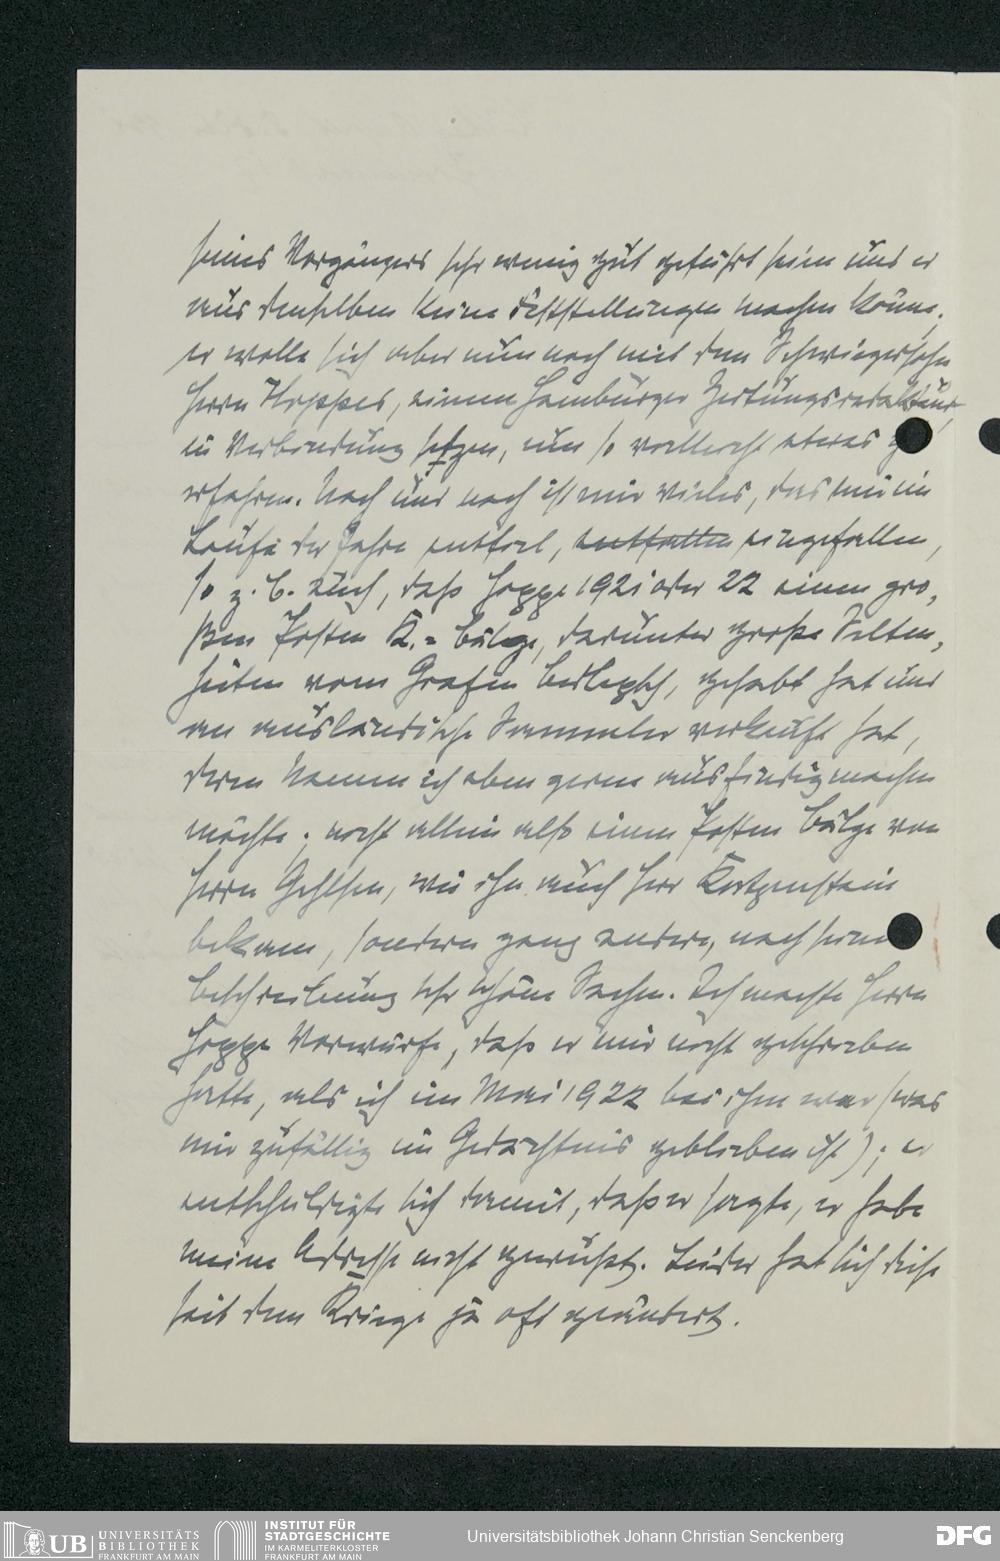 seines Vorgängers sehr wenig gut geführt seien und er
aus denselben keine Feststellungen machen könne,
er wolle sich aber nun noch mit dem Schwiegersohn
Herrn Hoppes, einem Hamburger Zeitungsredakteur,
in Verbindung setzen, um so vielleicht etwas
erfahren. Nach und nach ist mir vieles, das mir im
Laufe der Jahre entfiel, entfallen eingefallen,
so z. B. auch, daß Hoppe 1921 oder 22 einen gro-
ßen Posten K.-Bälge, darunter große Selten-
heiten vom Grafen Berlepsch, gehabt hat und
an ausländische Sammler verkauft hat,
deren Namen ich eben gerne ausfindig machen
möchte; nicht allein also einen Posten Bälge von
Herrn Gehlsen, wie ihn auch Herr Katzenstein
bekam, sondern ganz andere, nach seiner
Beschreibung sehr schöne Sachen. Ich machte Herrn
Hoppe Vorwürfe, daß er mir nicht geschrieben
hatte, als ich im Mai 1922 bei ihm war (was
mir zufällig im Gedächtnis geblieben ist); er
entschuldigte sich damit, daß er sagte, er habe
meine Adresse nicht gewußt. Leider hat sich diese
seit dem Kriege ja oft geändert.
UB UNIVERSITÄTS
BIBLIOTHEK
FRANKFURT AM MAIN
INSTITUT FÜR
STADTGESCHICHTE
IM KARMELITERKLOSTER
FRANKFURT AM MAIN
Universitätsbibliothek Johann Christian Senckenberg
DFG